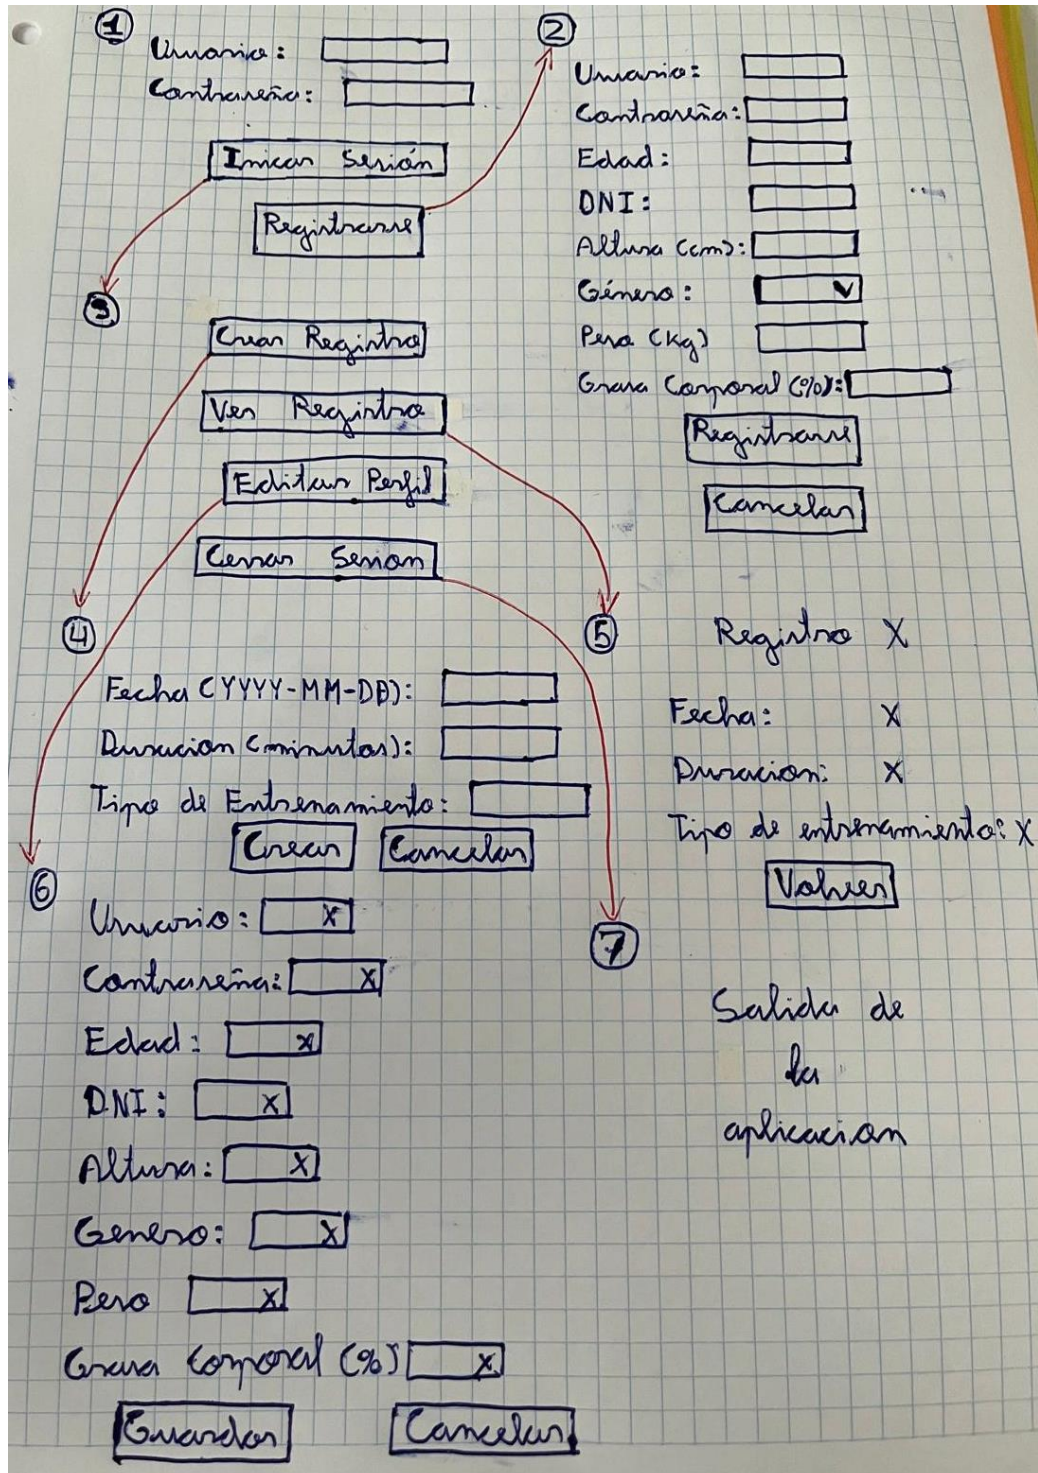 1
Usuario:
Contraseña:
Inicar Sesión
Registrarse
2
Usuario:
Contraseña:
Edad:
DNI:
Altura (cm):
Género: V
Peso (Kg)
Grasa Corporal (%):
Registrarse
Cancelar
3
Crear Registro
Ver Registro
Editar Perfil
Cerrar Sesion
4
Fecha (YYYY-MM-DD):
Duracion (minutos):
Tipo de Entrenamiento:
Crear Cancelar
5
Registro X
Fecha: X
Duracion: X
Tipo de entrenamiento: X
Volver
6
Usuario: X
Contraseña: X
Edad: X
DNI: X
Altura: X
Genero: X
Peso X
Grasa Corporal (%) X
Guardar Cancelar
7
Salida de
la
aplicacion